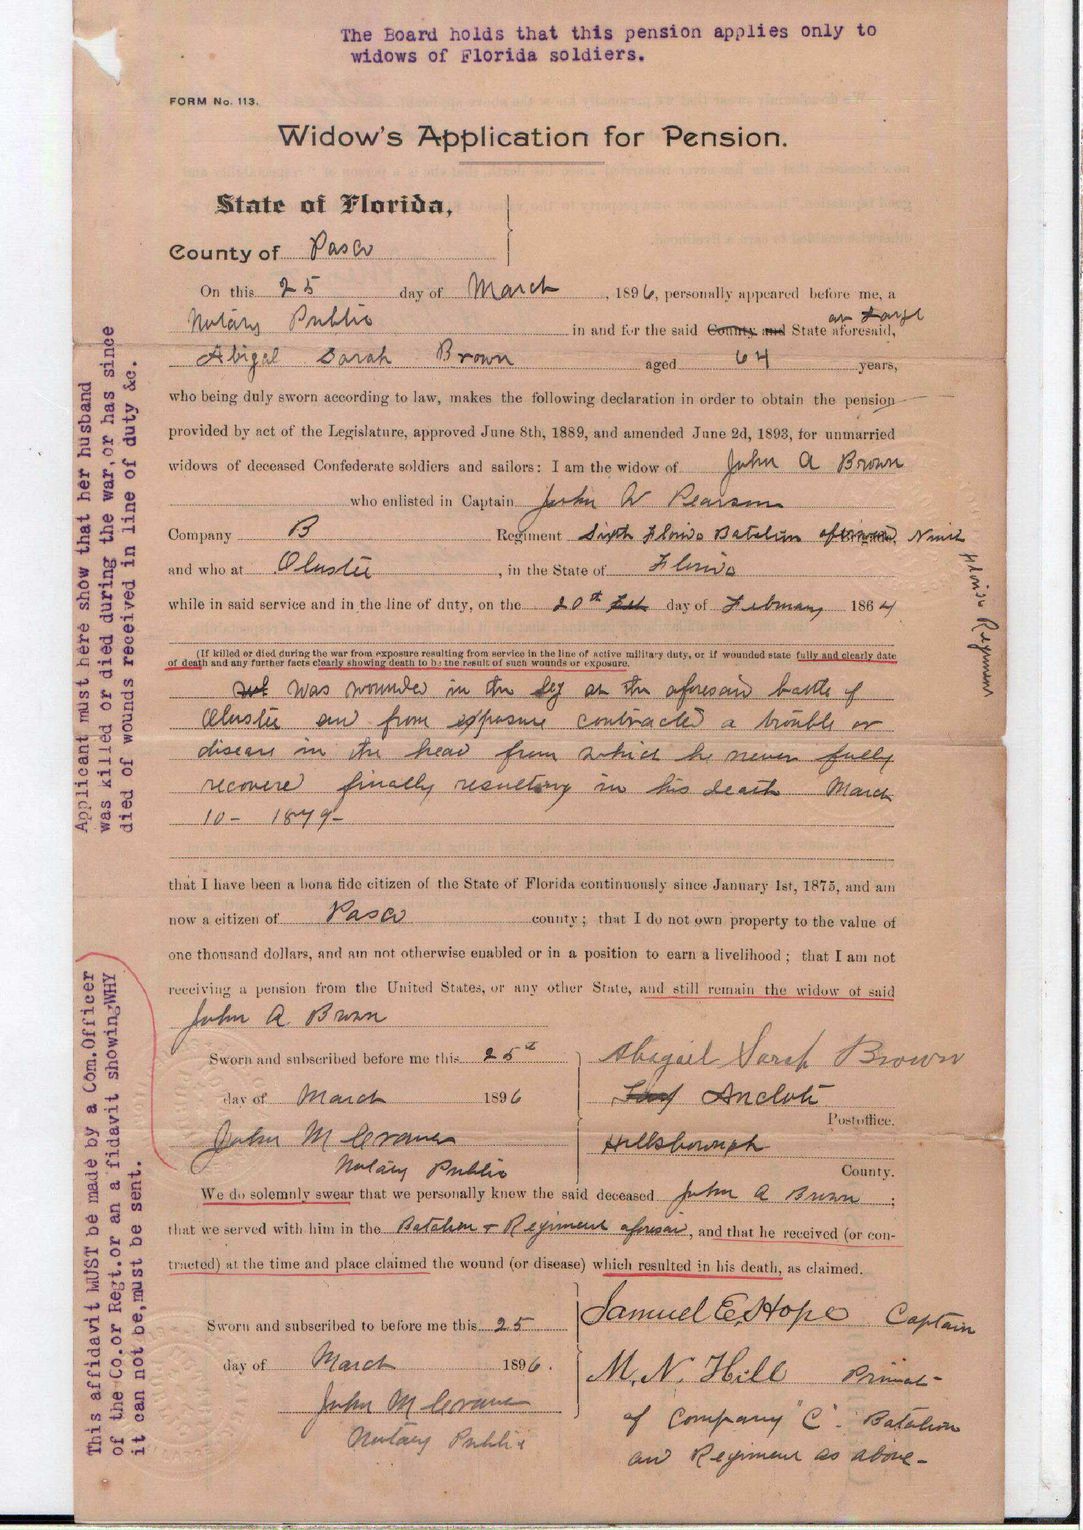 The Board holds that this pension applies only to
widows of Florida soldiers.
FORM No. 113.
Widow's Application for Pension.
State of Florida,
County of Pasco
On this 25 day of March, 1896, personally appeared before me, a
Notary Public in and for the said County and State aforesaid, at Large
Abigal Sarah Brown aged 64 years,
who being duly sworn according to law, makes the following declaration in order to obtain the pension
provided by act of the Legislature, approved June 8th, 1889, and amended June 2d, 1893, for unmarried
widows of deceased Confederate soldiers and sailors: I am the widow of John A Brown
who enlisted in Captain John W Pearson
Company B Regiment Sixth Florida Batalion afterward Ninth
Florida Regiment
and who at Olustee, in the State of Florida
while in said service and in the line of duty, on the 20th Feb day of February 1864
(If killed or died during the war from exposure resulting from service in the line of active military duty, or if wounded state fully and clearly date
of death and any further facts clearly showing death to be the result of such wounds or exposure.
was wounded in the leg at the aforesaid battle of
Olustee and from exposure contracted a trouble or
disease in the head from which he never fully
recovered finally resulting in his death March
10- 1879-
that I have been a bona fide citizen of the State of Florida continuously since January 1st, 1875, and am
now a citizen of Pasco county; that I do not own property to the value of
one thousand dollars, and am not otherwise enabled or in a position to earn a livelihood; that I am not
receiving a pension from the United States, or any other State, and still remain the widow of said
John A. Brown
Sworn and subscribed before me this 25th
day of March 1896
John M Craner
Notary Public
Abigail Sarah Brown
Anclote
Postoffice.
Hillsborough
County.
We do solemnly swear that we personally knew the said deceased John A Brown;
that we served with him in the Batalion & Regiment aforesaid, and that he received (or con-
tracted) at the time and place claimed the wound (or disease) which resulted in his death, as claimed.
Sworn and subscribed to before me this 25
day of March 1896.
John M Craner
Notary Public
Samuel E. Hope Captain
M. N. Hill Privat-
of Company "C". Batalion
and Regiment as above-
Applicant must here show that her husband
was killed or died during the war, or has since
died of wounds received in line of duty &c.
This affidavit MUST be made by a Com. Officer
of the Co. or Regt. or an a fidavit showing WHY
it can not be, must be sent.